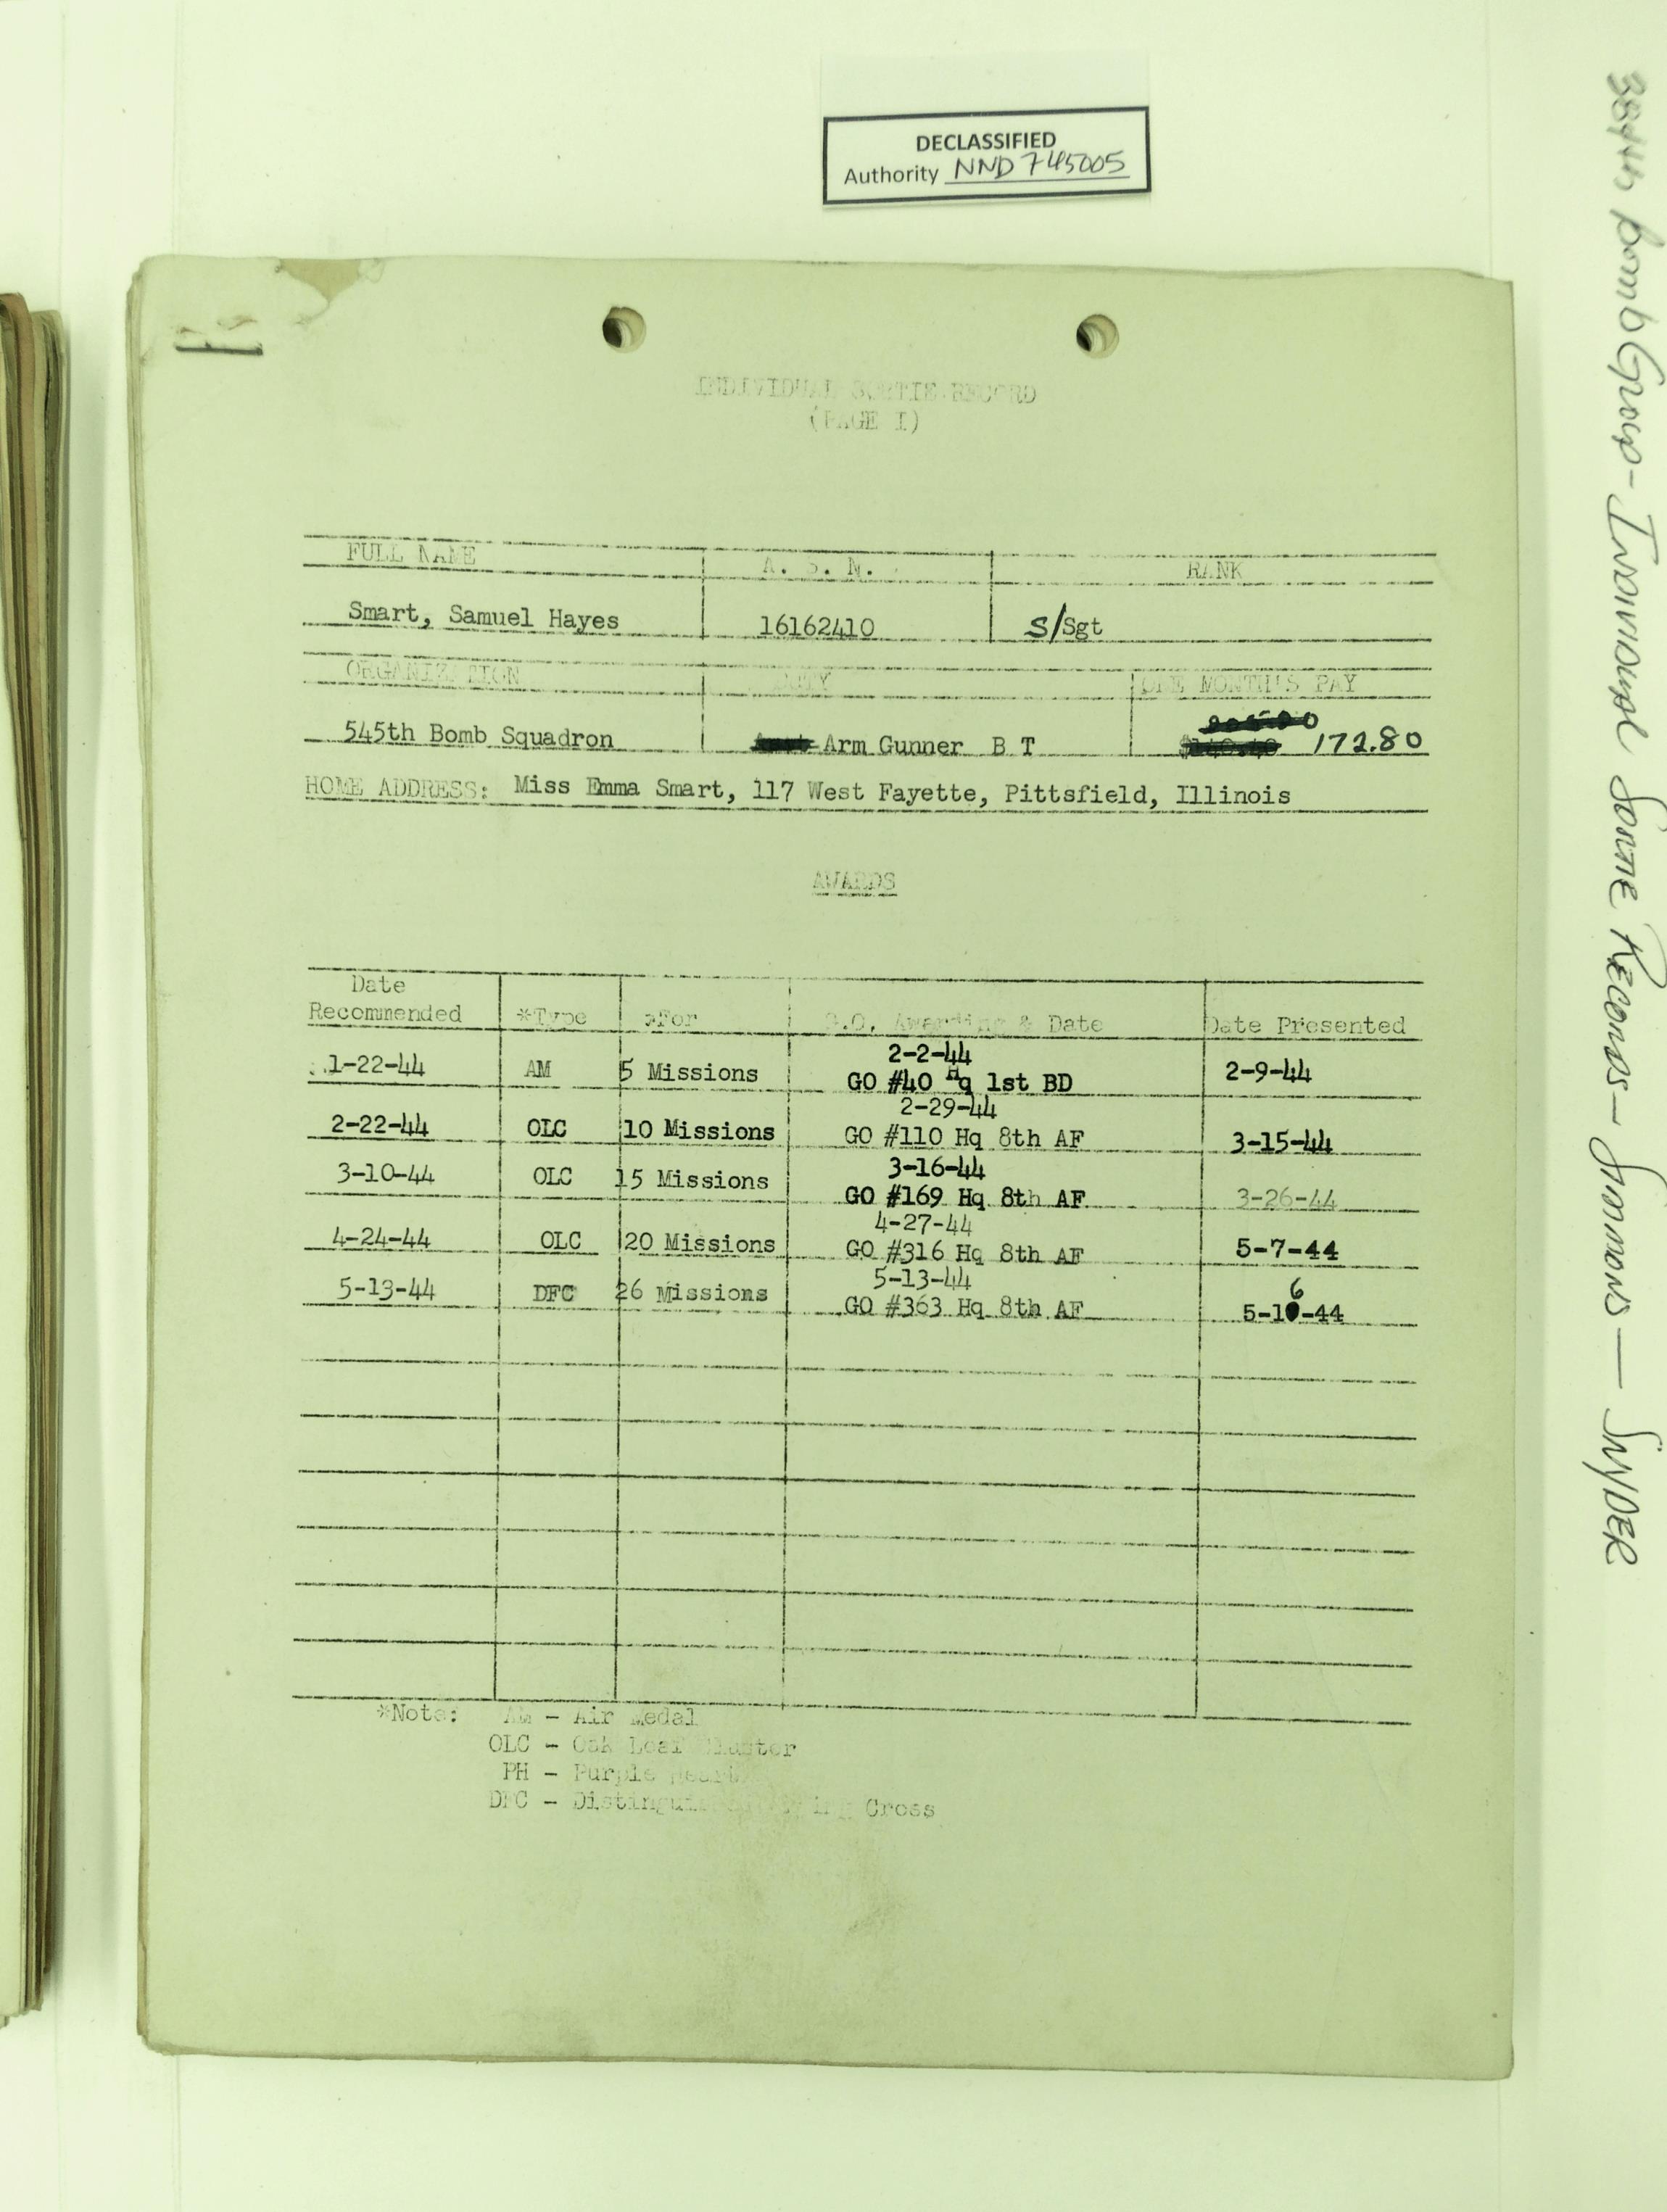 DECLASSIFIED
Authority NND 745005
INDIVIDUAL SORTIE RECORD
(PAGE I)
FULL NAME A. S. N. RANK
Smart, Samuel Hayes 16162410 S/Sgt
ORGANIZATION DUTY ONE MONTH'S PAY
545th Bomb Squadron Arm Gunner B T 172.80
HOME ADDRESS: Miss Emma Smart, 117 West Fayette, Pittsfield, Illinois
AWARDS
Date
Recommended *Type *For G.O. Awarding & Date Date Presented
2-2-44
1-22-44 AM 5 Missions GO #40 Hq 1st BD 2-9-44
2-29-44
2-22-44 OLC 10 Missions GO #110 Hq 8th AF 3-15-44
3-16-44
3-10-44 OLC 15 Missions GO #169 Hq 8th AF 3-26-44
4-27-44
4-24-44 OLC 20 Missions GO #316 Hq 8th AF 5-7-44
5-13-44 6
5-13-44 DFC 26 Missions GO #363 Hq 8th AF 5-1-44
*Note: AM - Air Medal
OLC - Oak Leaf Cluster
PH - Purple Heart
DFC - Distinguished Flying Cross
384th Bomb Group - Individual Sortie Records - Simmons — Snyder